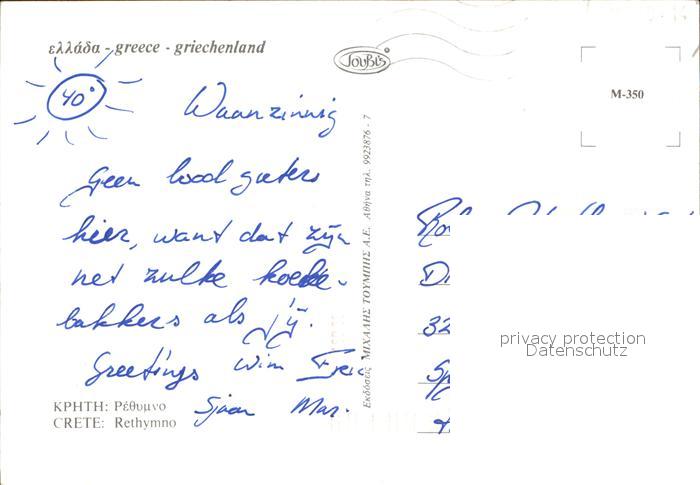 ελλάδα - greece - griechenland
ΤουΒι'ς
M-350
40°
Waanzinnig
Geen loodgieters
hier, want dat zijn
net zulke koeke-
bakkers als jij.
Greetings Wim
Sjaan Mar.
ΚΡΗΤΗ: Ρέθυμνο
CRETE: Rethymno
Εκδόσεις ΜΙΧΑΛΗΣ ΤΟΥΜΠΗΣ Α.Ε. Αθήνα τηλ. 9923876 - 7
32
privacy protection
Datenschutz